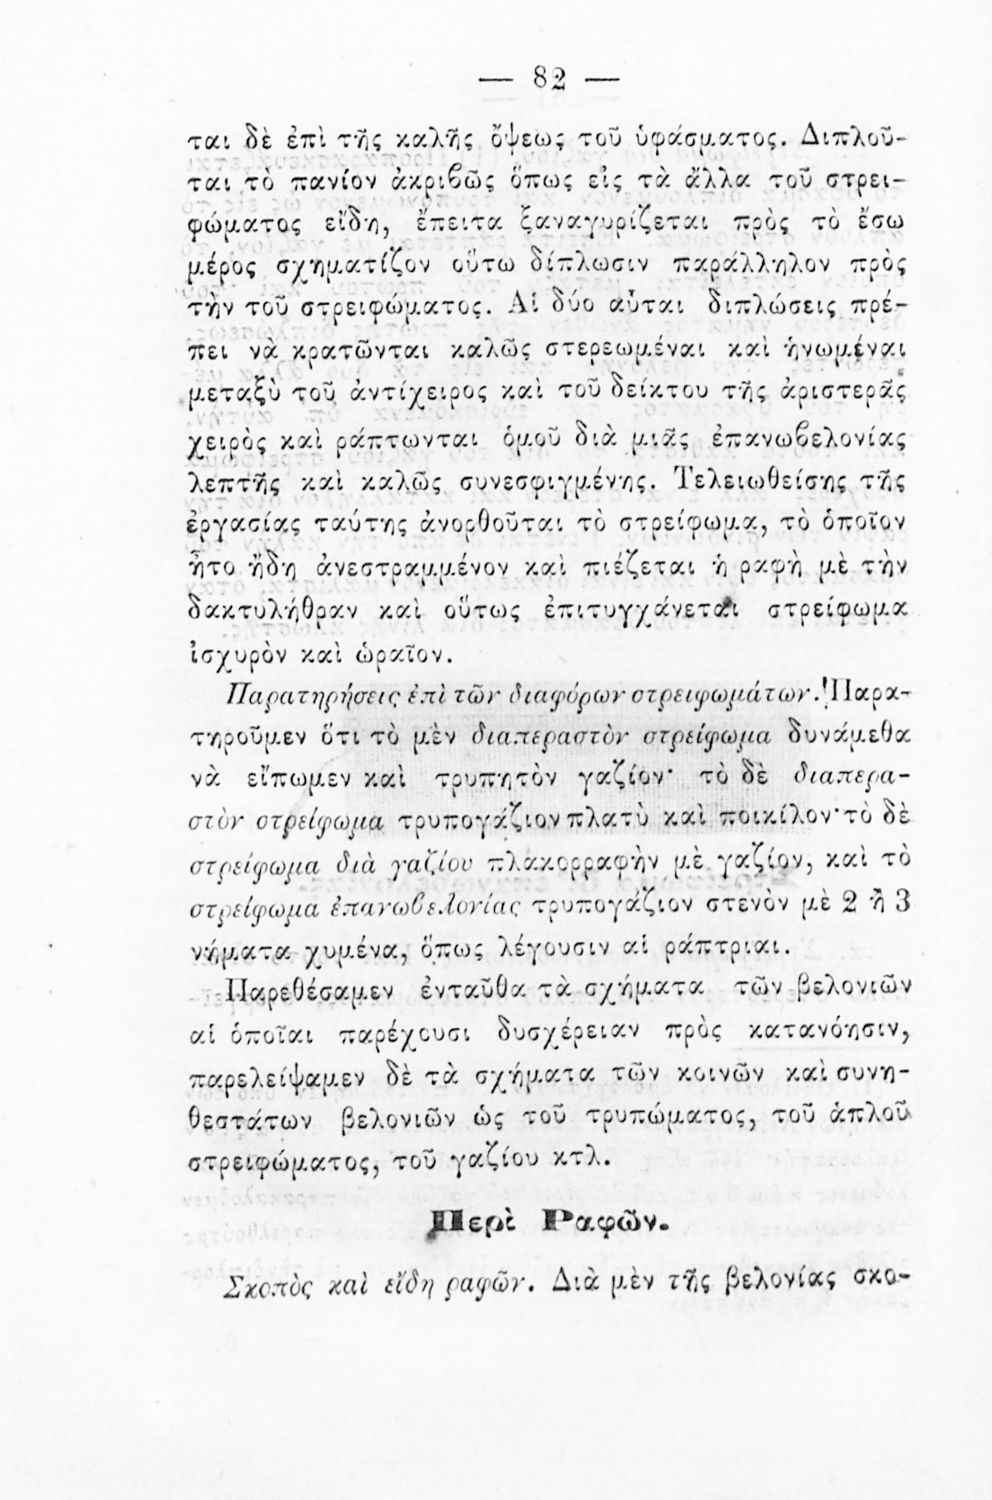 — 82 —
ται δὲ ἐπὶ τῆς καλῆς ὄψεως τοῦ ὑφάσματος. Διπλοῦ-
ται τὸ πανίον ἀκριβῶς ὅπως εἰς τὰ ἄλλα τοῦ στρει-
φώματος εἴδη, ἔπειτα ξαναγυρίζεται πρὸς τὸ ἔσω
μέρος σχηματίζον οὕτω δίπλωσιν παράλληλον πρὸς
τὴν τοῦ στρειφώματος. Αἱ δύο αὗται διπλώσεις πρέ-
πει νὰ κρατῶνται καλῶς στερεωμέναι καὶ ἡνωμέναι
μεταξὺ τοῦ ἀντίχειρος καὶ τοῦ δείκτου τῆς ἀριστερᾶς
χειρὸς καὶ ράπτωνται ὁμοῦ διὰ μιᾶς ἐπανωβελονίας
λεπτῆς καὶ καλῶς συνεσφιγμένης. Τελειωθείσης τῆς
ἐργασίας ταύτης ἀνορθοῦται τὸ στρείφωμα, τὸ ὁποῖον
ἦτο ἤδη ἀνεστραμμένον καὶ πιέζεται ἡ ραφὴ μὲ τὴν
δακτυλήθραν καὶ οὕτως ἐπιτυγχάνεται στρείφωμα
ἰσχυρὸν καὶ ὡραῖον.
Παρατηρήσεις ἐπὶ τῶν διαφόρων στρειφωμάτων. Παρα-
τηροῦμεν ὅτι τὸ μὲν διαπεραστὸν στρείφωμα δυνάμεθα
νὰ εἴπωμεν καὶ τρυπητὸν γαζίον· τὸ δὲ διαπερα-
στὸν στρείφωμα τρυπογάζιον πλατὺ καὶ ποικίλον· τὸ δὲ
στρείφωμα διὰ γαζίου πλακορραφὴν μὲ γαζίον, καὶ τὸ
στρείφωμα ἐπανωβελονίας τρυπογάζιον στενὸν μὲ 2 ἢ 3
νήματα χυμένα, ὅπως λέγουσιν αἱ ράπτριαι.
Παρεθέσαμεν ἐνταῦθα τὰ σχήματα τῶν βελονιῶν
αἱ ὁποῖαι παρέχουσι δυσχέρειαν πρὸς κατανόησιν,
παρελείψαμεν δὲ τὰ σχήματα τῶν κοινῶν καὶ συνη-
θεστάτων βελονιῶν ὡς τοῦ τρυπώματος, τοῦ ἁπλοῦ
στρειφώματος, τοῦ γαζίου κτλ.
Περὶ Ραφῶν.
Σκοπὸς καὶ εἴδη ραφῶν. Διὰ μὲν τῆς βελονίας σκο-